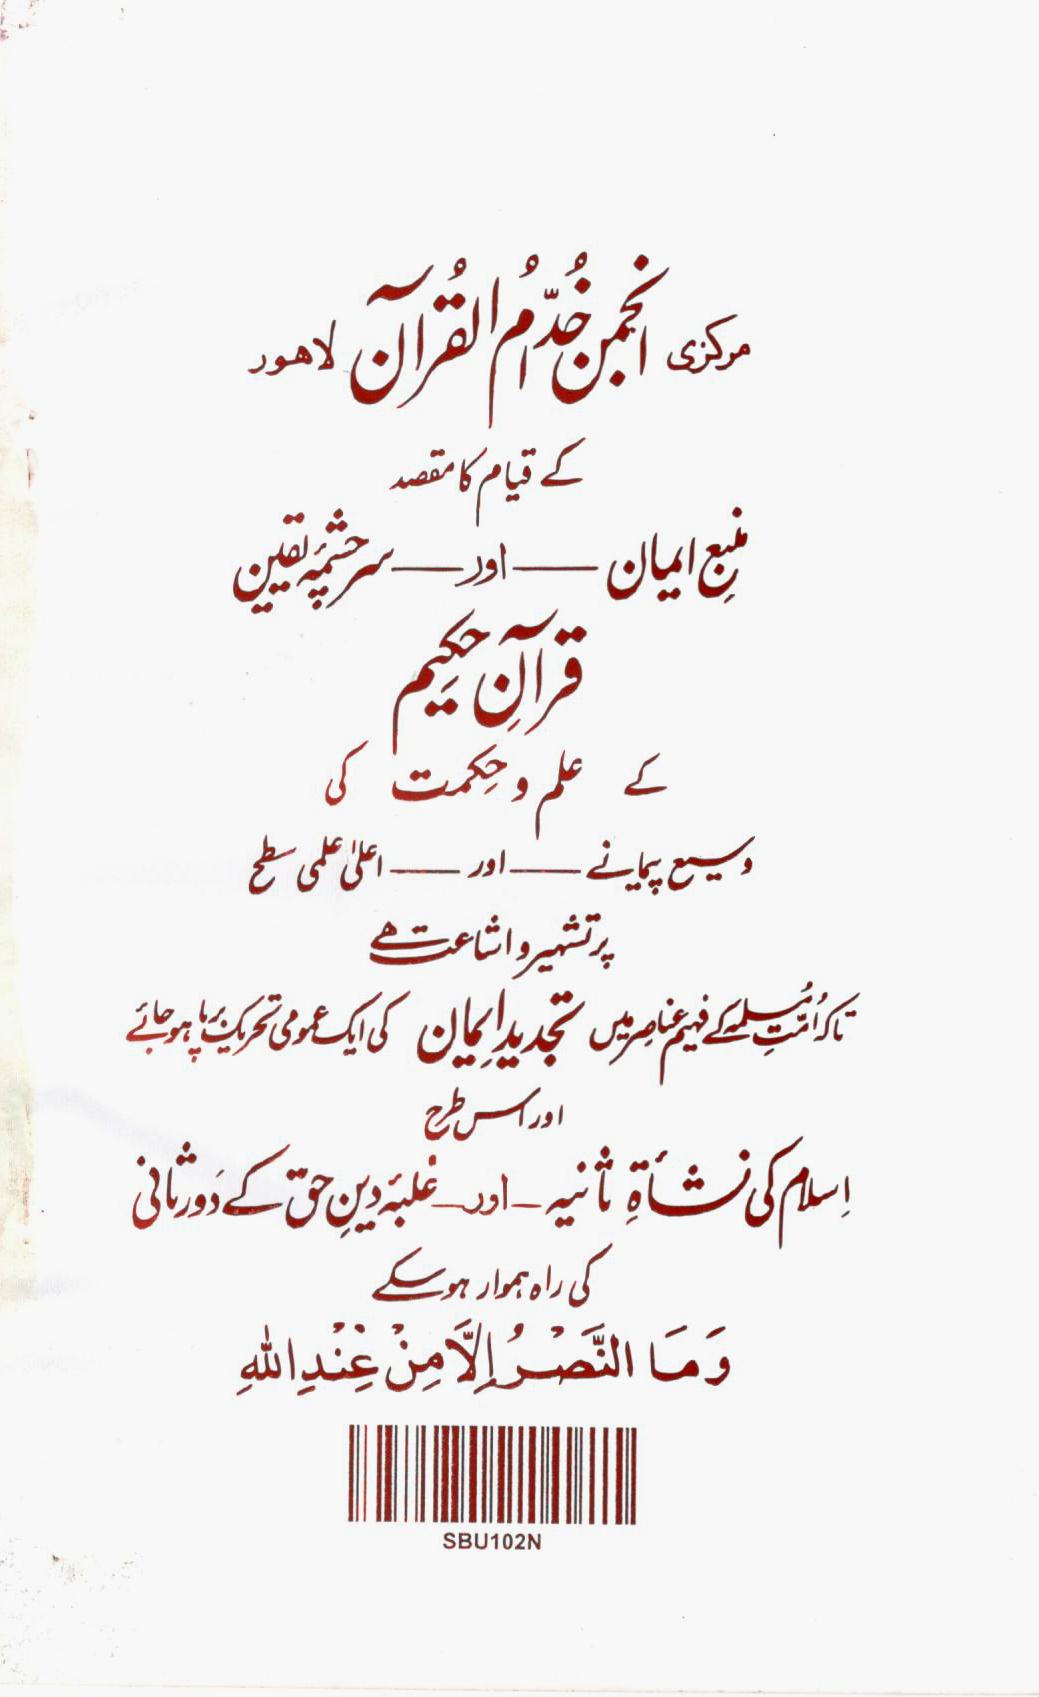 مرکزی انجمن خُدّامُ القُرآن لاھور
کے قیام کا مقصد
منبعِ ایمان ——— اور ——— سرچشمۂ یقین
قرآنِ حکیم
کے علم و حِکمت کی
وسیع پیمانے ——— اور ——— اعلیٰ علمی سطح
پر تشہیر و اشاعت ہے
تاکہ اُمّتِ مُسلمہ کے فہیم عناصر میں تجدیدِ ایمان کی ایک عمومی تحریک برپا ہو جائے
اور اس طرح
اِسلام کی نشأۃِ ثانیہ ــ اور ــ غلبۂ دینِ حق کے دَورِ ثانی
کی راہ ہموار ہو سکے
وَمَا النَّصْرُ إِلَّا مِنْ عِنْدِ اللهِ
SBU102N